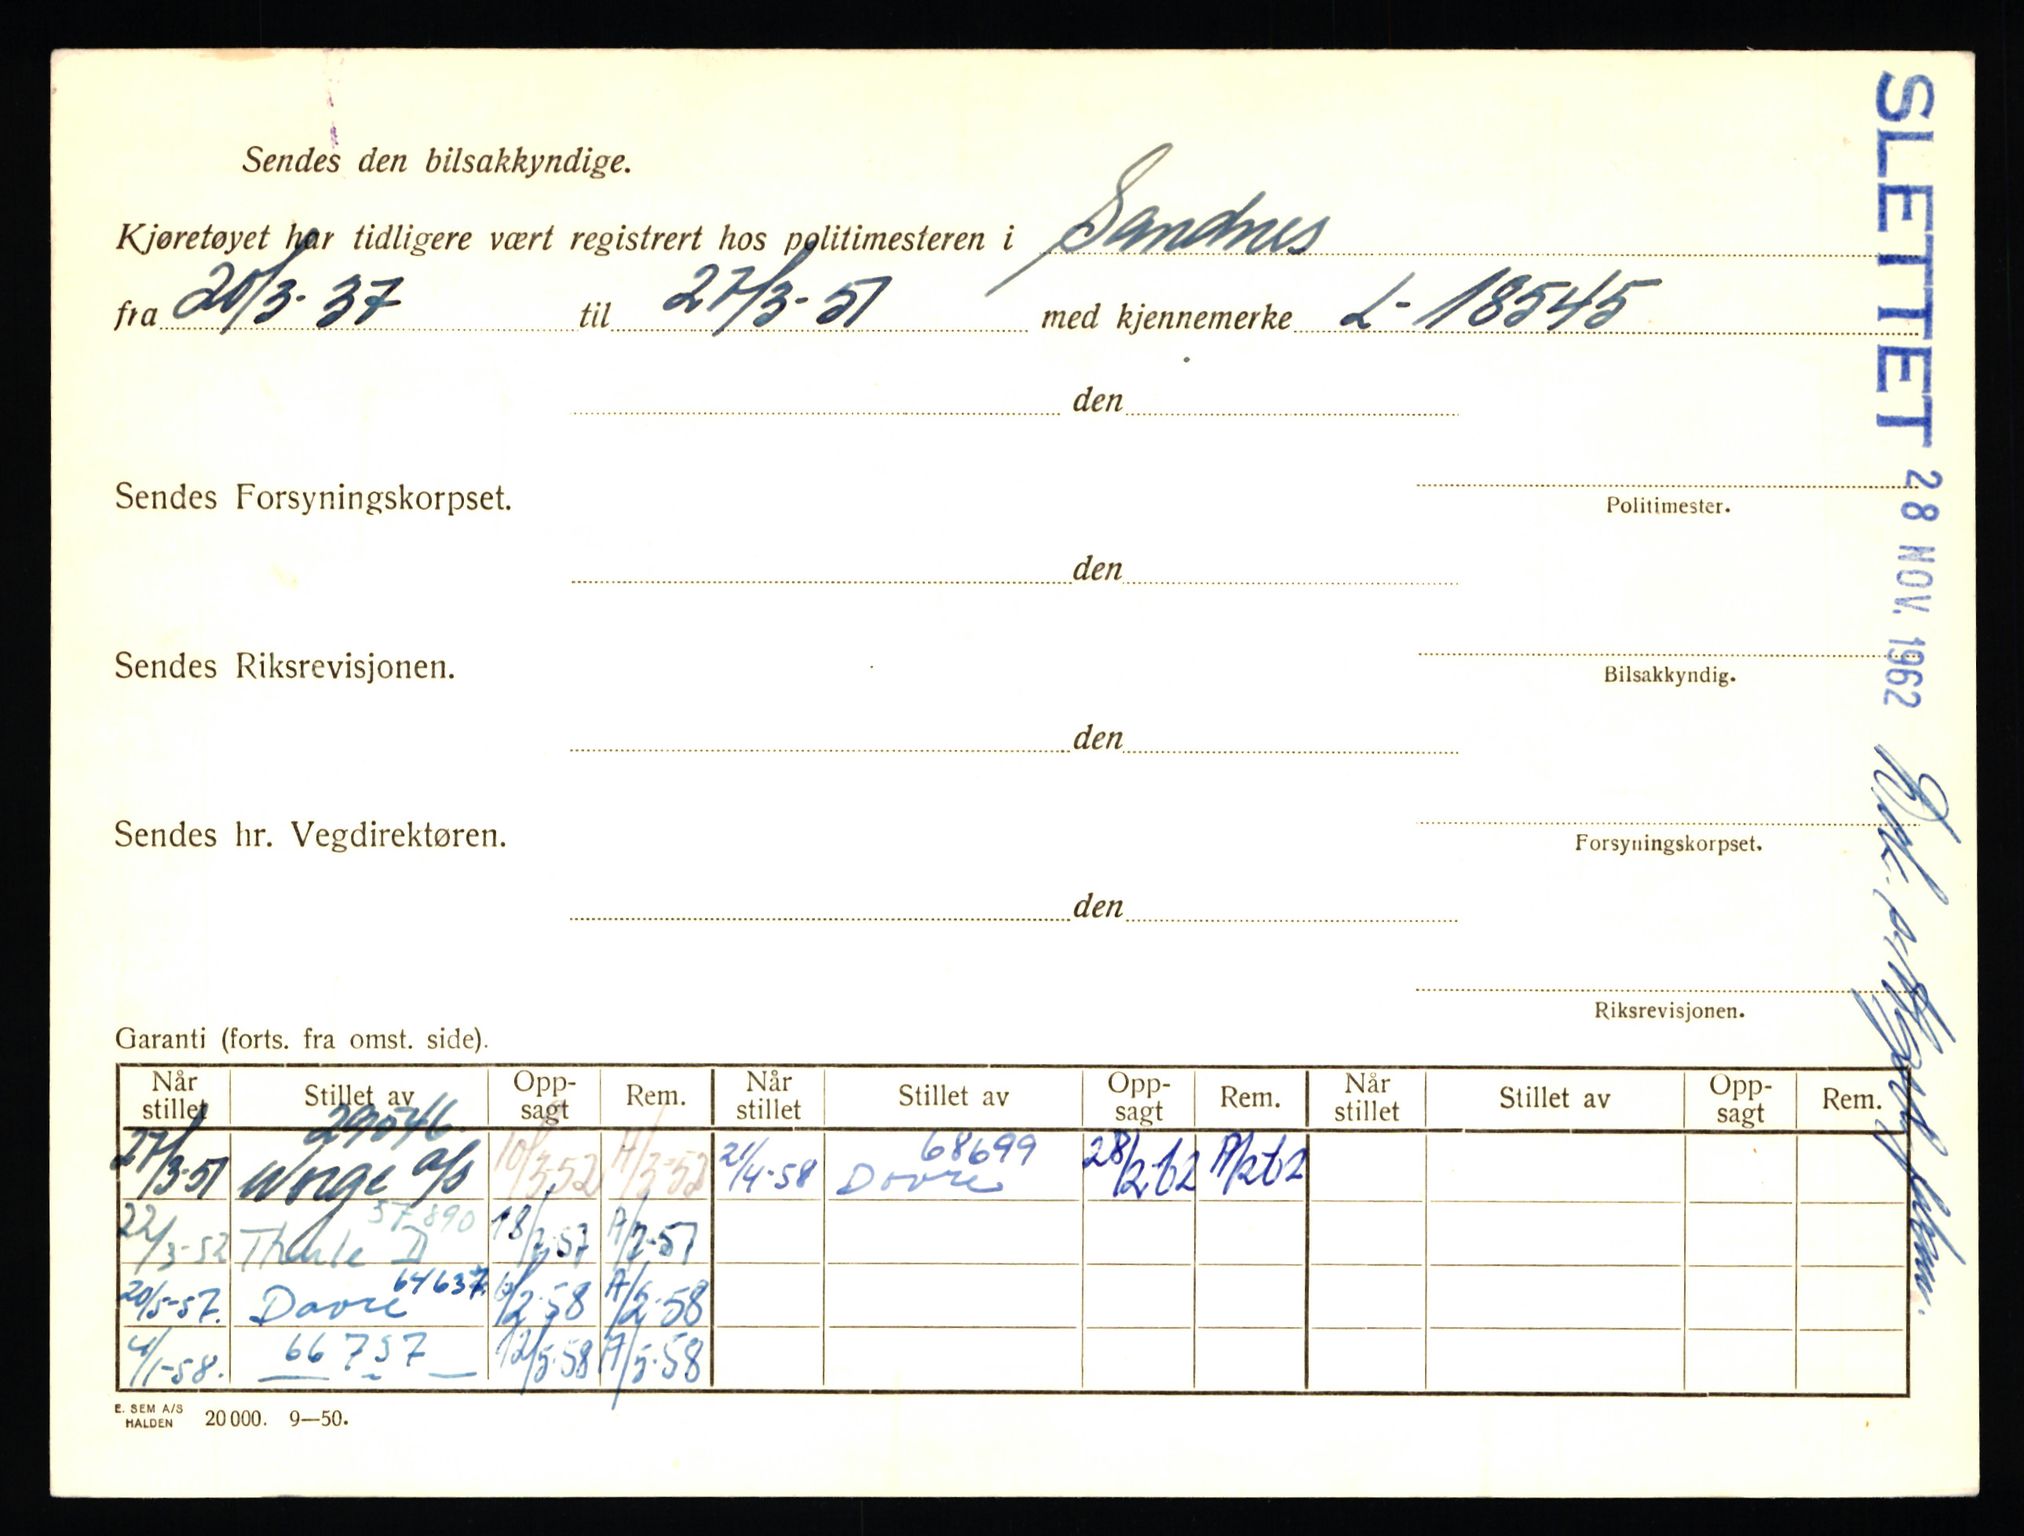 Sendes den bilsakkyndige.
Kjøretøyet har tidligere vært registrert hos politimesteren i Sandnes
fra 20/3-37 til 27/3-51 med kjennemerke L-18545
den
Sendes Forsyningskorpset.
Politimester.
den
Sendes Riksrevisjonen.
Bilsakkyndig.
den
Sendes hr. Vegdirektøren.
Forsyningskorpset.
den
Riksrevisjonen.
Garanti (forts. fra omst. side).
Når stillet Stillet av Opp-sagt Rem. Når stillet Stillet av Opp-sagt Rem. Når stillet Stillet av Opp-sagt Rem.
27/3-51 29046 Norge a/s 10/3-52 A/3-52 21/4-58 68699 Dovre 28/2-62 A/2 62
22/3-52 57890 Thule D 18/2-57 A/2-57
20/5-57. 64637. Dovre /2-58 A/2-58
4/1-58. 66757 12/5-58 A/5-58
E. SEM A/S
HALDEN 20000. 9—50.
SLETTET 28 NOV. 1962